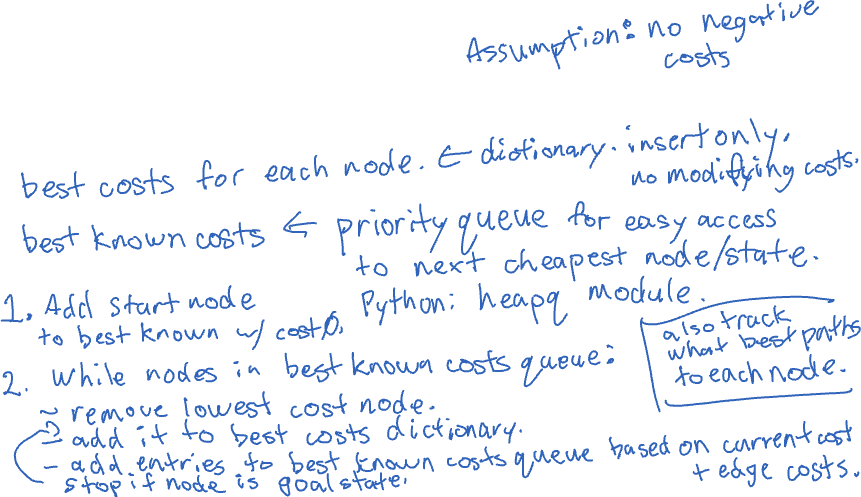 Assumption: no negative
costs
best costs for each node. ← dictionary. insert only.
no modifying costs.
best known costs ← priority queue for easy access
to next cheapest node/state.
Python: heapq module.
1. Add start node
to best known w/ cost 0.
also track
what best paths
to each node.
2. While nodes in best known costs queue:
~ remove lowest cost node.
- add it to best costs dictionary.
- add entries to best known costs queue based on current cost
+ edge costs.
stop if node is goal state.